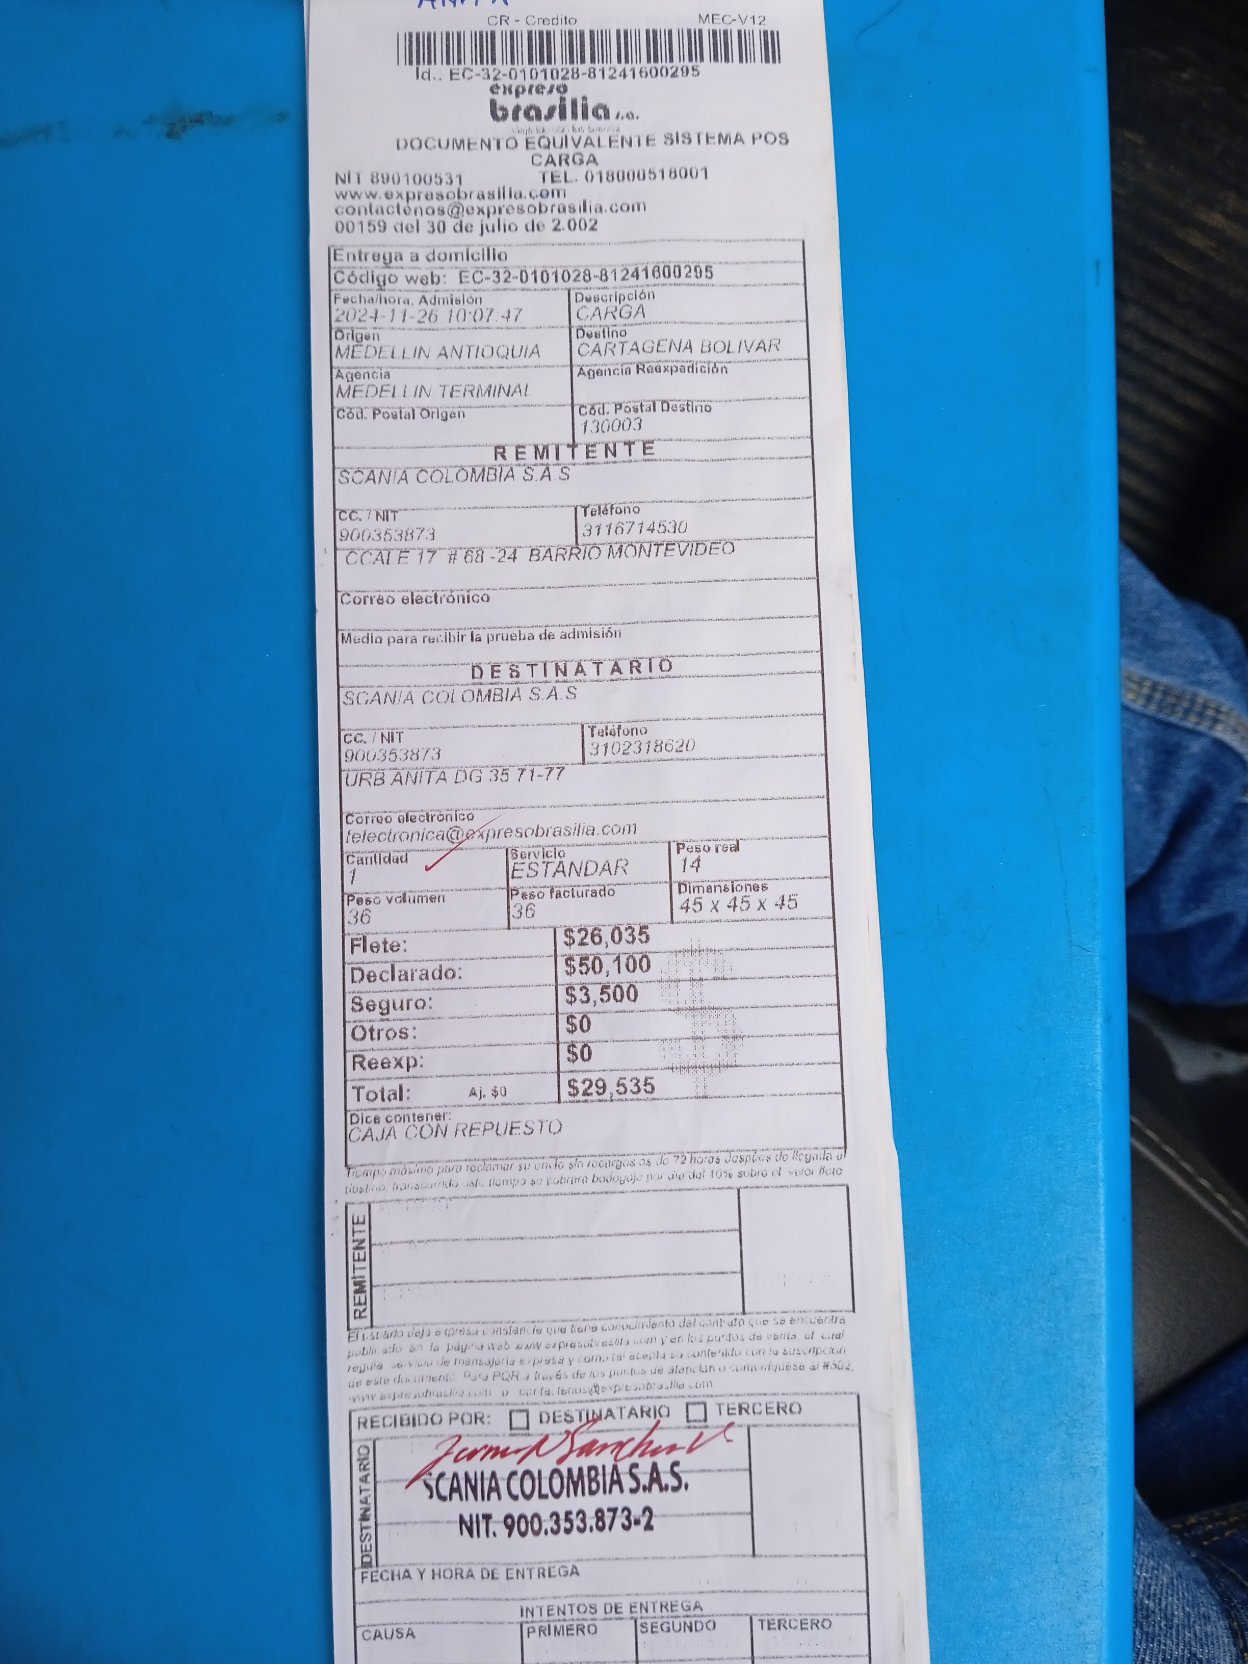 ANITA
CR - Credito MEC-V12
Id.. EC-32-0101028-81241600295
expreso
brasilia s.a.
DOCUMENTO EQUIVALENTE SISTEMA POS
CARGA
NIT 890100531 TEL. 018000518001
www.expresobrasilia.com
contactenos@expresobrasilia.com
00159 del 30 de julio de 2.002
Entrega a domicilio
Código web: EC-32-0101028-81241600295
Fecha/hora, Admisión Descripción
2024-11-26 10:07.47 CARGA
Origen Destino
MEDELLIN ANTIOQUIA CARTAGENA BOLIVAR
Agencia Agencia Reexpedición
MEDELLIN TERMINAL
Cód. Postal Origen Cód. Postal Destino
130003
REMITENTE
SCANIA COLOMBIA S.A.S
CC. / NIT Teléfono
900353873 3116714530
CCALE 17 # 68 -24 BARRIO MONTEVIDEO
Correo electrónico
Medio para recibir la prueba de admisión
DESTINATARIO
SCANIA COLOMBIA S.A.S
CC. / NIT Teléfono
900353873 3102318620
URB ANITA DG 35 71-77
Correo electrónico
felectronica@expresobrasilia.com
Cantidad Servicio Peso real
1 ESTANDAR 14
Peso volumen Peso facturado Dimensiones
36 36 45 x 45 x 45
Flete: $26,035
Declarado: $50,100
Seguro: $3,500
Otros: $0
Reexp: $0
Total: Aj. $0 $29,535
Dice contener:
CAJA CON REPUESTO
Tiempo máximo para reclamar su envío sin recargos es de 72 horas después de llegada a
destino, transcurrido este tiempo se cobrará bodegaje por día del 10% sobre el valor flete
REMITENTE
El usuario deja expresa constancia que tiene conocimiento del contrato que se encuentra
publicado en la página web www.expresobrasilia.com y en los puntos de venta, el cual
regula servicio de mensajería expresa y como tal acepta su contenido con la suscripción
de este documento. Para PQR a través de los puntos de atención o comuníquese al #502,
www.expresobrasilia.com o contactenos@expresobrasilia.com
RECIBIDO POR: DESTINATARIO TERCERO
DESTINATARIO
SCANIA COLOMBIA S.A.S.
NIT. 900.353.873-2
FECHA Y HORA DE ENTREGA
INTENTOS DE ENTREGA
CAUSA PRIMERO SEGUNDO TERCERO